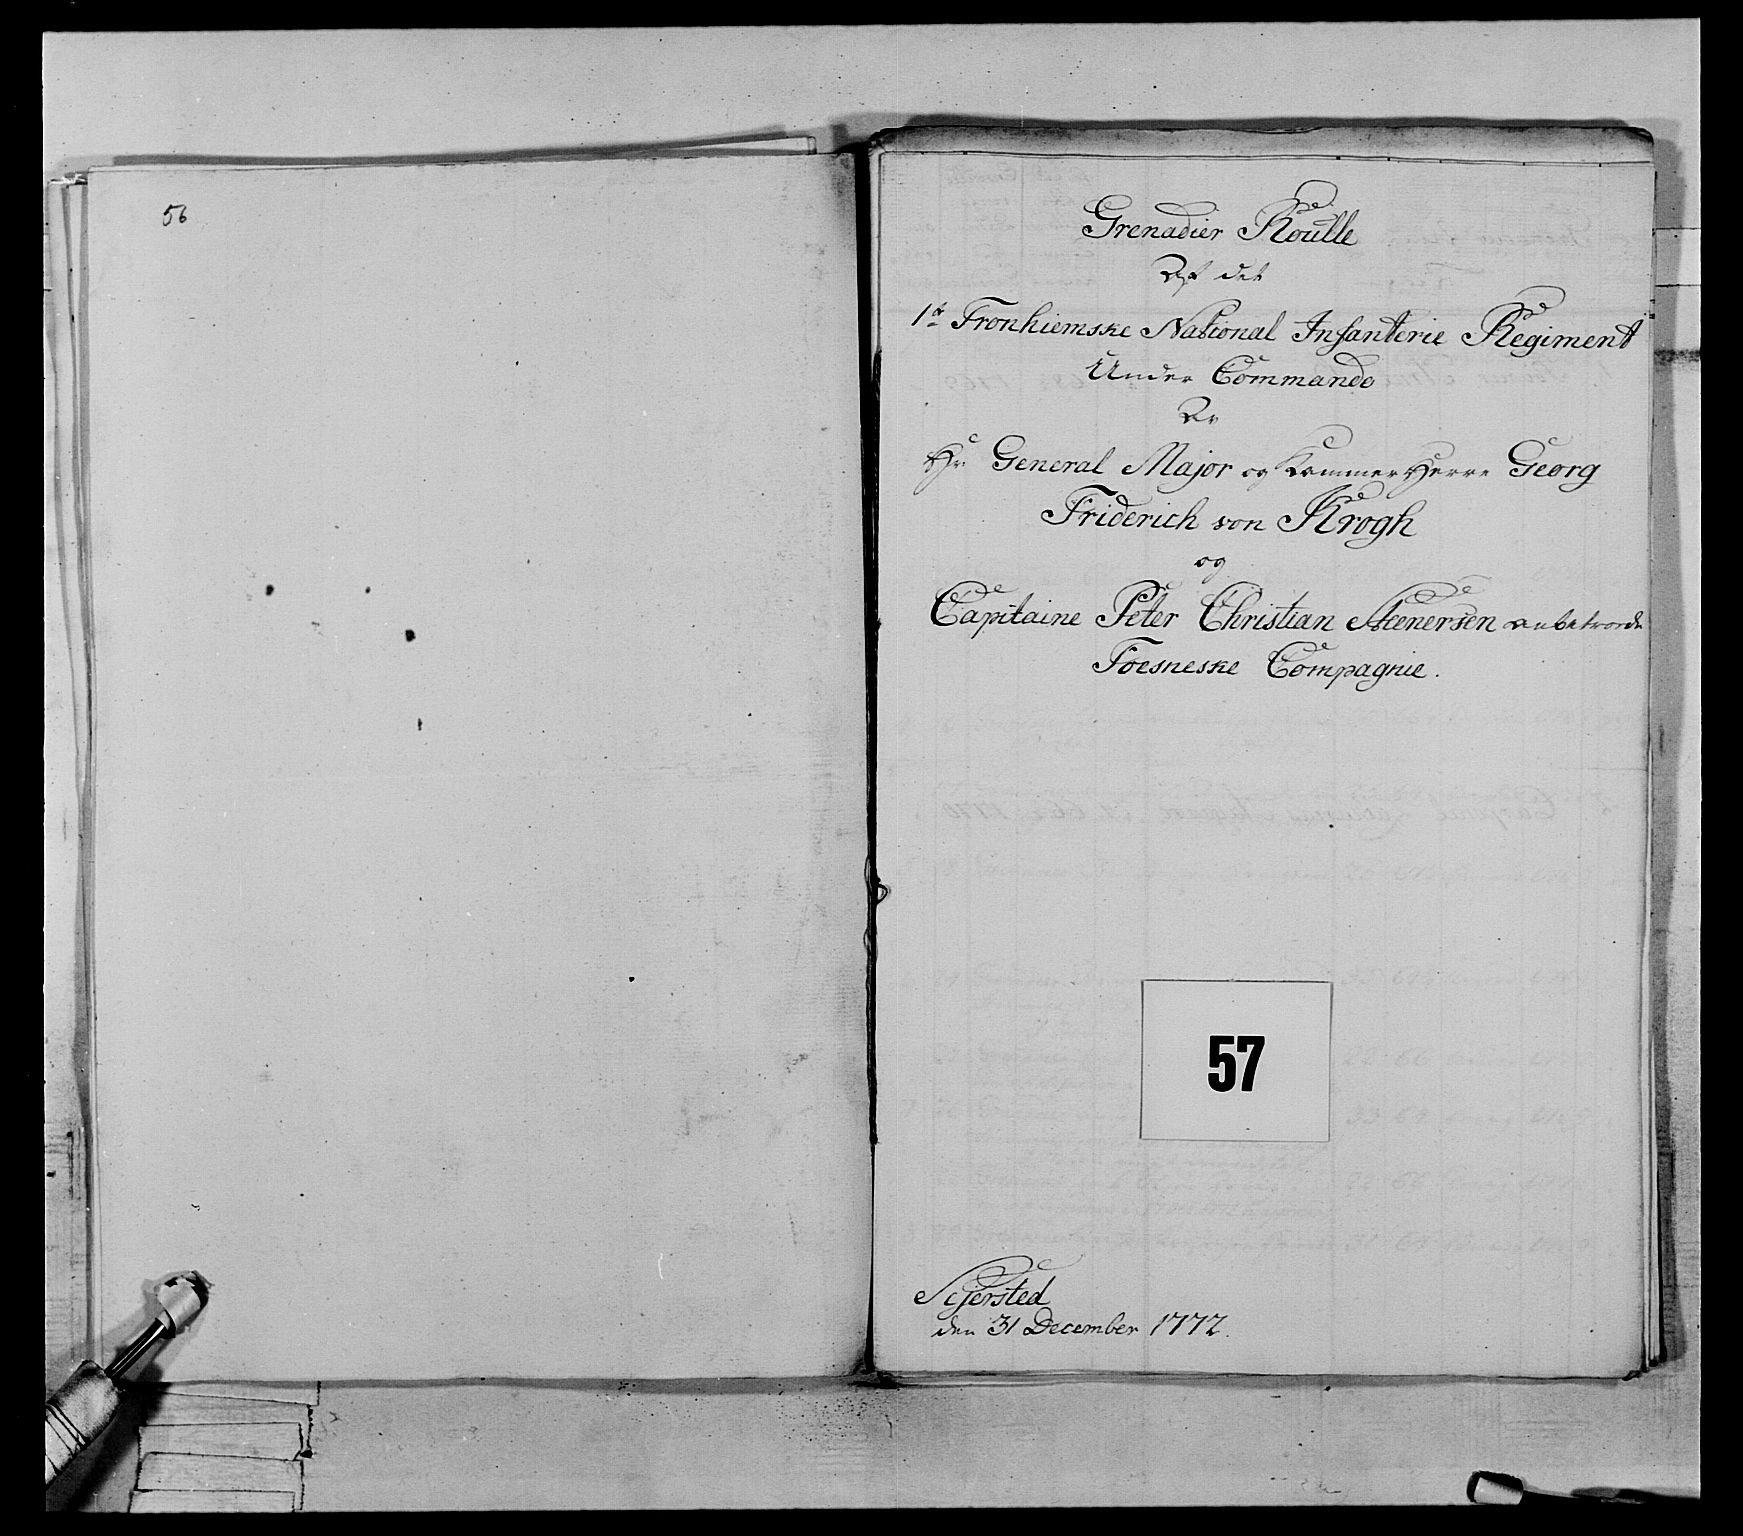 56
Grenadier Roulle
Af det
1te Tronhiemske National Infanterie Regiment
Under Commando
Av
Hr General Major og Kammer Herre Georg
Friderich von Krogh
og
Capitaine Peter Christian Steenersen anbetroede
Foesneske Compagnie.
57
Scjersted
den 31 December 1772.